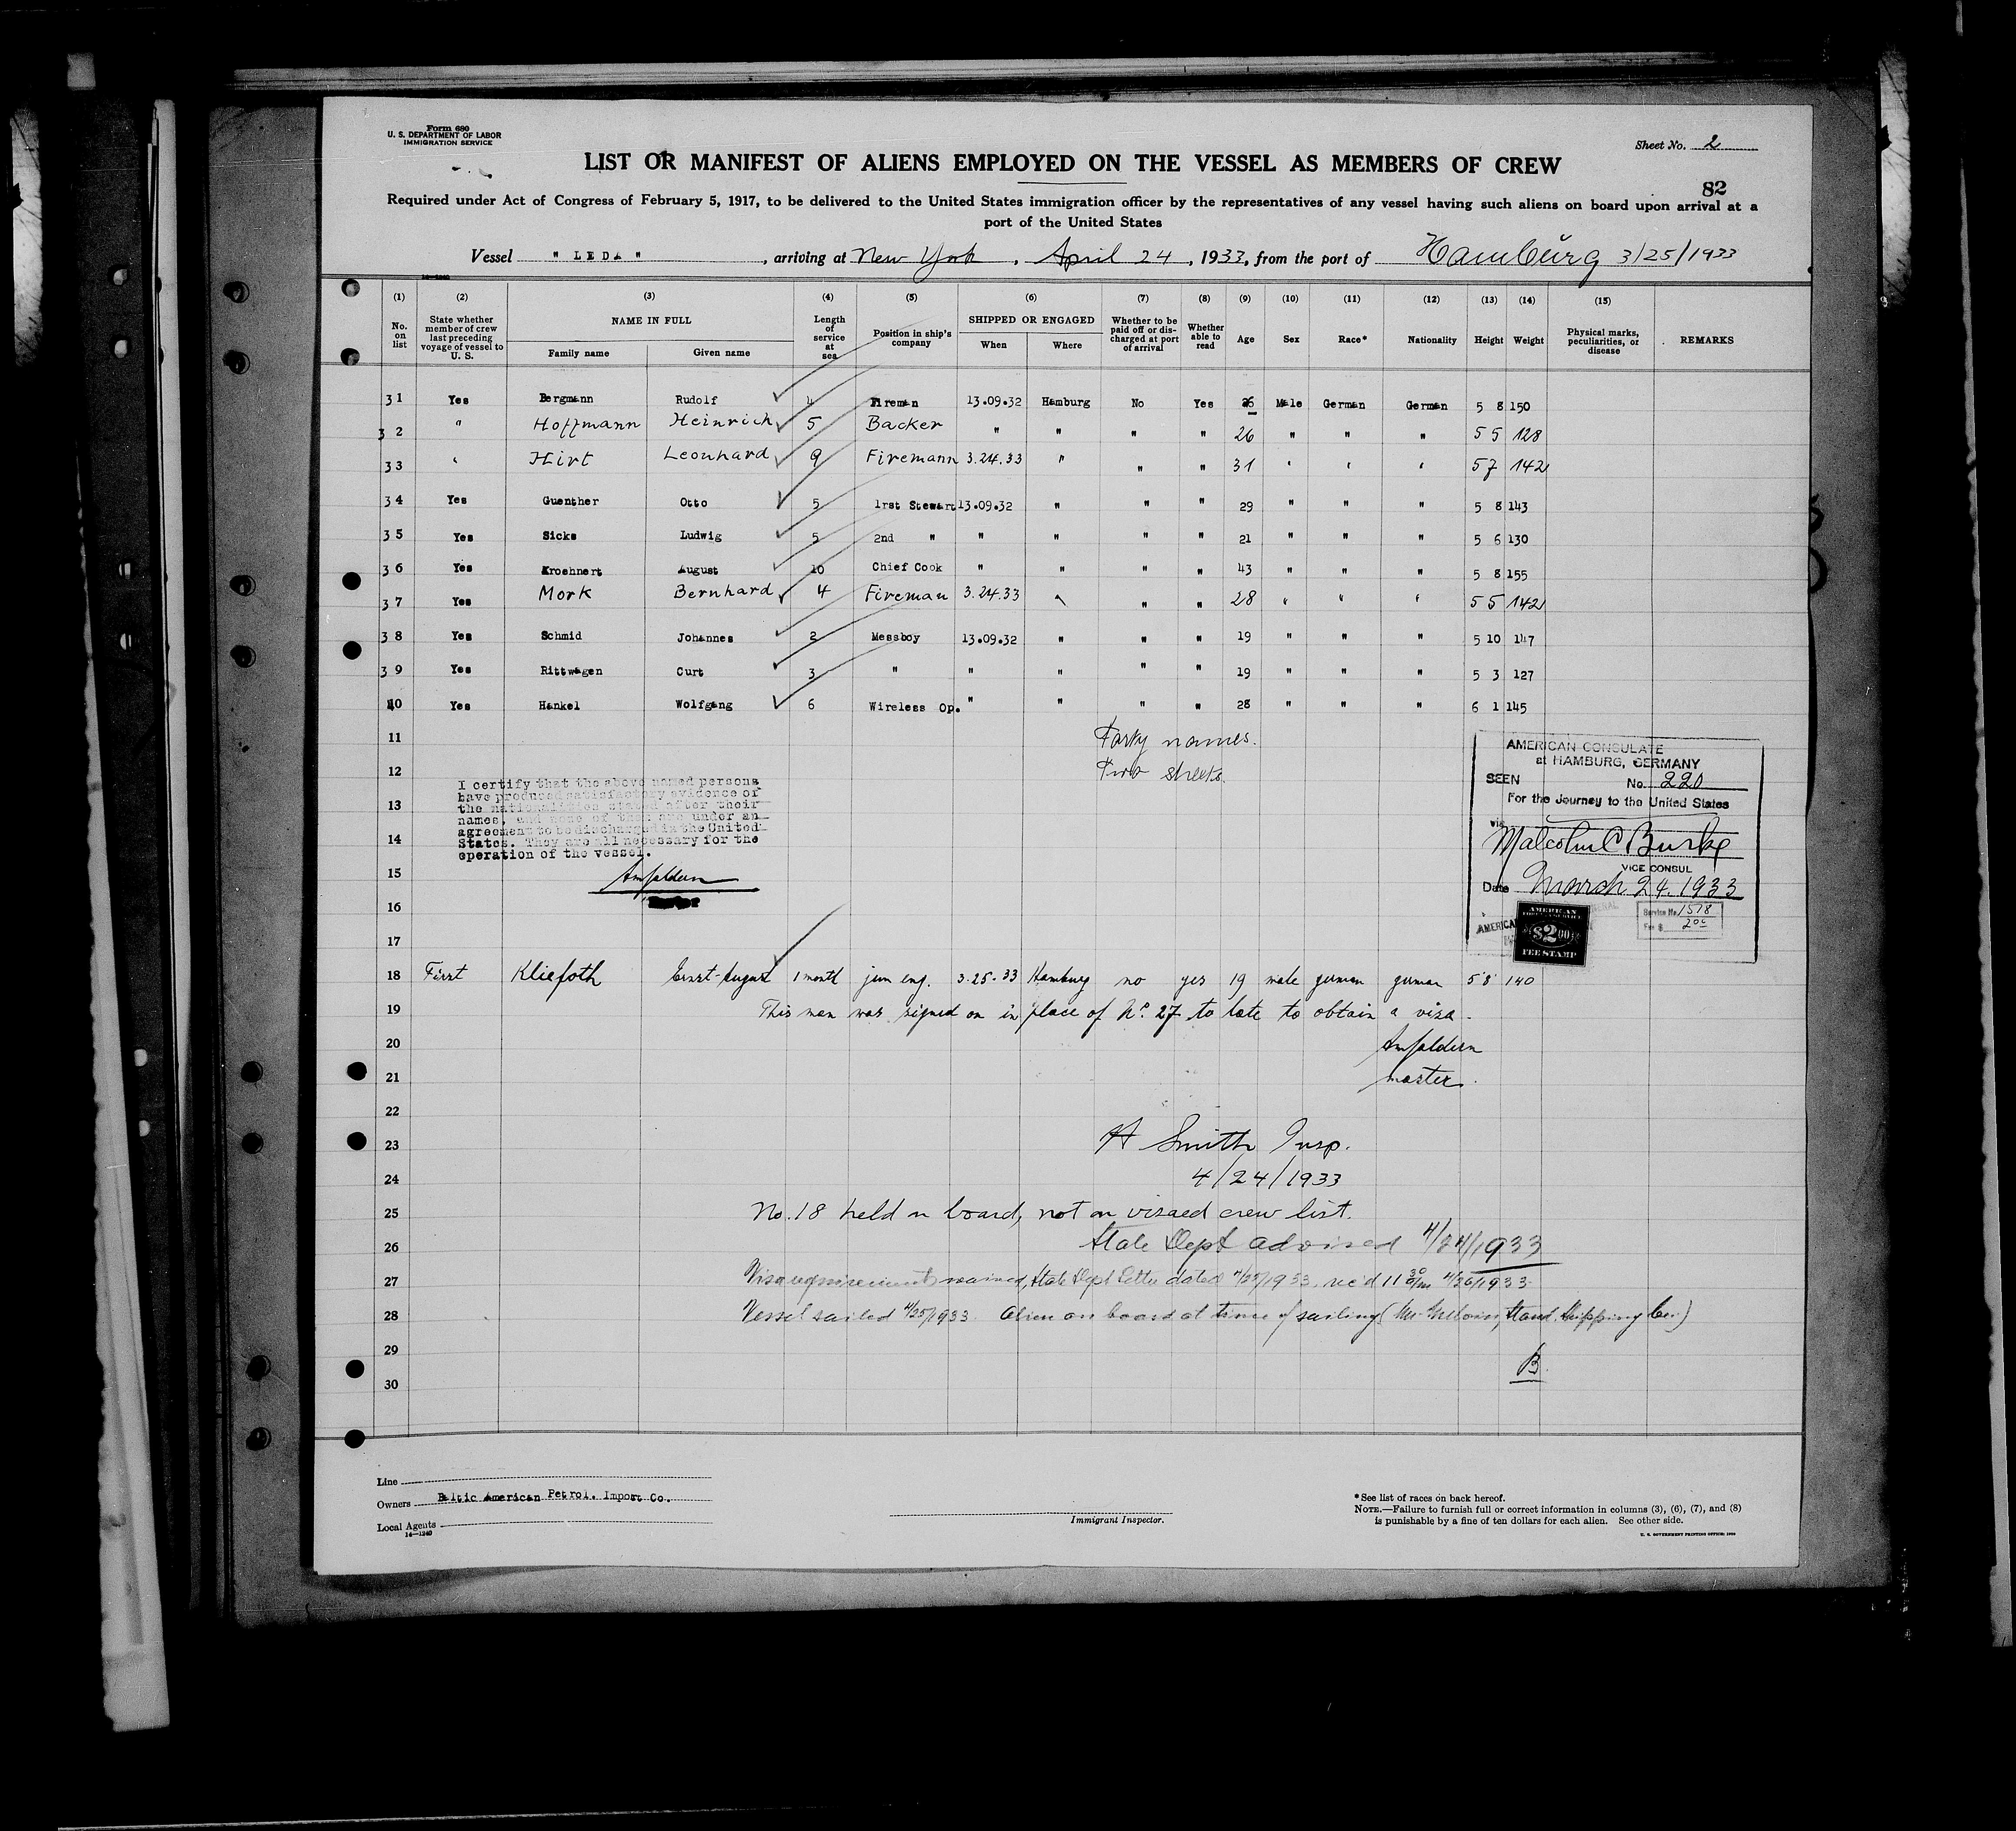 Form 680
U. S. DEPARTMENT OF LABOR
IMMIGRATION SERVICE
Sheet No. 2
LIST OR MANIFEST OF ALIENS EMPLOYED ON THE VESSEL AS MEMBERS OF CREW
82
Required under Act of Congress of February 5, 1917, to be delivered to the United States immigration officer by the representatives of any vessel having such aliens on board upon arrival at a
port of the United States
Vessel " LEDA " , arriving at New York , April 24 , 1933, from the port of Hamburg 3/25/1933
14-1240
(1) (2) (3) (4) (5) (6) (7) (8) (9) (10) (11) (12) (13) (14) (15)
No. on list State whether member of crew last preceding voyage of vessel to U. S. NAME IN FULL Family name Given name Length of service at sea Position in ship's company SHIPPED OR ENGAGED When Where Whether to be paid off or discharged at port of arrival Whether able to read Age Sex Race* Nationality Height Weight Physical marks, peculiarities, or disease REMARKS
31 Yes Bergmann Rudolf 4 Fireman 13.09.32 Hamburg No Yes 26 Male German German 5 8 150
32 " Hoffmann Heinrich 5 Backer " " " " 26 " " " 5 5 128
33 " Hirt Leonhard 9 Firemann 3.24.33 " " " 31 " " " 5 7 142
34 Yes Guenther Otto 5 1rst Stewart 13.09.32 " " " 29 " " " 5 8 143
35 Yes Sicks Ludwig 5 2nd " " " " " 21 " " " 5 6 130
36 Yes Kroehnert August 10 Chief Cook " " " " 43 " " " 5 8 155
37 Yes Mork Bernhard 4 Fireman 3.24.33 " " " 28 " " " 5 5 142
38 Yes Schmid Johannes 2 Messboy 13.09.32 " " " 19 " " " 5 10 147
39 Yes Rittwagen Curt 3 " " " " " 19 " " " 5 3 127
40 Yes Hankel Wolfgang 6 Wireless Op. " " " " 28 " " " 6 1 145
11 Forty names.
12 Two sheets.
13
14
15
16
17
I certify that the above named persons
have produced satisfactory evidence of
the nationalities stated after their
names, and none of them are under an
agreement to be discharged in the United
States. They are all necessary for the
operation of the vessel.
AMERICAN CONSULATE
at HAMBURG, GERMANY
SEEN No. 220
For the Journey to the United States
via
Malcolm C Burke
VICE CONSUL
Date March 24. 1933
AMERICAN
$2.00
FEE STAMP
Service No. 1578
Fee $ 2.00
18 First Kliefoth Ernst-August 1 month jun eng. 3.25.33 Hamburg no yes 19 male german german 5'8' 140
19 This man was signed on in place of No. 27 to late to obtain a visa.
20
21 master.
22
23 H Smith Insp.
24 4/24/1933
25 No. 18 held on board, not on visaed crew list.
26 State Dept advised 4/24/1933
27 Visa requirements waived, State Dept letter dated 4/25/1933. rec'd 11 30 a/m 4/26/1933.
28 Vessel sailed 4/25/1933. Alien on board at time of sailing ( Stand. Shipping Co.)
29 B
30
Line
Owners Baltic American Petrol. Import Co.
Local Agents
14-1240
Immigrant Inspector.
* See list of races on back hereof.
NOTE.—Failure to furnish full or correct information in columns (3), (6), (7), and (8)
is punishable by a fine of ten dollars for each alien. See other side.
U. S. GOVERNMENT PRINTING OFFICE: 1930